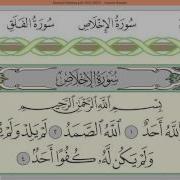 سُورَةُ الْفَلَقِ سُورَةُ الإِخْلَاصِ
سُورَةُ الإِخْلَاصِ
بِسْمِ اللَّهِ الرَّحْمَٰنِ الرَّحِيمِ
اللَّهُ أَحَدٌ ١ اللَّهُ الصَّمَدُ ٢ لَمْ يَلِدْ وَلَمْ
وَلَمْ يَكُن لَّهُ كُفُوًا أَحَدٌ ٤